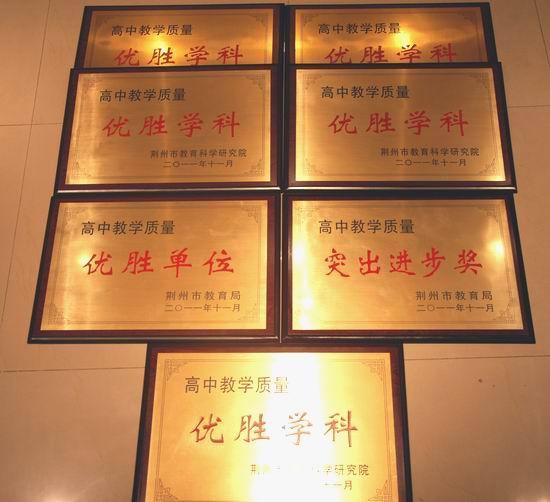 高中教学质量
优胜学科
高中教学质量
优胜学科
高中教学质量
优胜学科
荆州市教育科学研究院
二〇一一年十一月
高中教学质量
优胜学科
荆州市教育科学研究院
二〇一一年十一月
高中教学质量
优胜单位
荆州市教育局
二〇一一年十一月
高中教学质量
突出进步奖
荆州市教育局
二〇一一年十一月
高中教学质量
优胜学科
荆 科学研究院
十一月